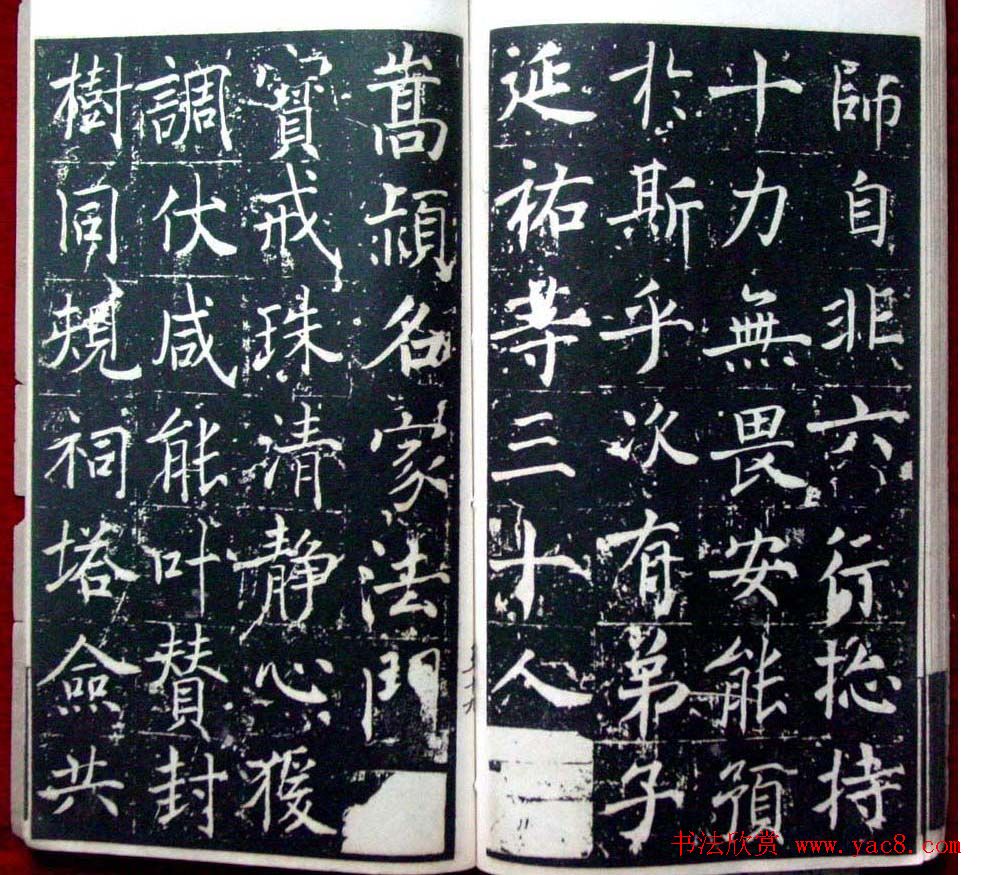 師自非六行揔持
十力無畏安能預
於斯乎次有弟子
延祐等三十人
嵩潁名家法門
寶戒珠清靜心猨
調伏咸能叶賛封
樹同規祠塔僉共
书法欣赏 www.yac8.com